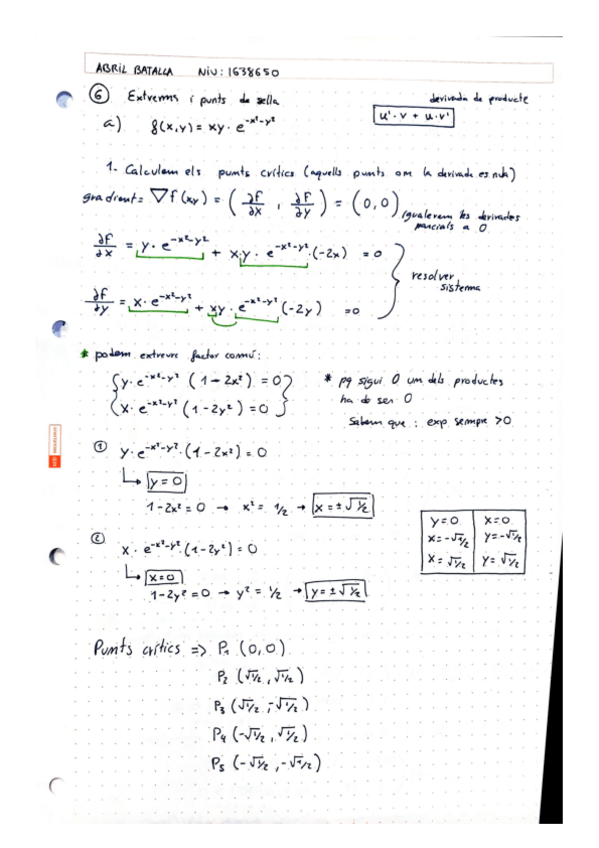 ABRIL BATALLA NIU: 1638650
⑥ Extrems i punts de sella
derivada de producte
u'·v + u·v'
a) f(x,y) = xy · e^{-x²-y²}
1. Calculem els punts crítics (aquells punts on la derivada es nula)
gradient = ∇f (xy) = (∂f/∂x , ∂f/∂y) = (0,0)
igualarem les derivades
parcials a 0
∂f/∂x = y · e^{-x²-y²} + x·y · e^{-x²-y²} · (-2x) = 0
resoldre
sistema
∂f/∂y = x · e^{-x²-y²} + xy · e^{-x²-y²} (-2y) = 0
* podem extreure factor comú:
{ y · e^{-x²-y²} (1 - 2x²) = 0
x · e^{-x²-y²} (1 - 2y²) = 0 }
* pq sigui 0 un dels productes
ha de ser 0
Sabem que : exp sempre >0
① y · e^{-x²-y²} · (1 - 2x²) = 0
↳ y = 0
1 - 2x² = 0 → x² = 1/2 → x = ±√1/2
② x · e^{-x²-y²} · (1 - 2y²) = 0
↳ x = 0
1 - 2y² = 0 → y² = 1/2 → y = ±√1/2
y = 0 x = 0
x = -√1/2 y = -√1/2
x = √1/2 y = √1/2
Punts crítics => P₁ (0,0)
P₂ (√1/2 , √1/2)
P₃ (√1/2 , -√1/2)
P₄ (-√1/2 , √1/2)
P₅ (-√1/2 , -√1/2)